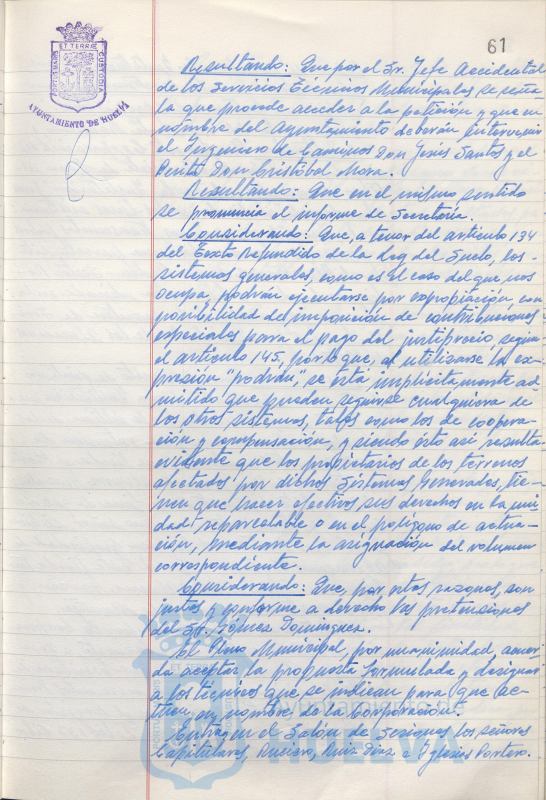 61
PORTUS MARIS ET TERRÆ CUSTODIA
AYUNTAMIENTO DE HUELVA
Resultando: Que por el Sr. Jefe Accidental
de los Servicios Técnicos Municipales se seña-
la que procede acceder a la petición y que en
nombre del Ayuntamiento deberán intervenir
el Ingeniero de Caminos Don Jesús Santos y el
Perito Don Cristóbal Mora.
Resultando: Que en el mismo sentido
se pronuncia el informe de Secretaría.
Considerando: Que, a tenor del artículo 134
del Texto Refundido de la Ley del Suelo, los-
sistemas generales, como es el caso del que nos
ocupa, podrán ejecutarse por expropiación, con
posibilidad de imposición de contribuciones
especiales para el pago del justiprecio según
el artículo 145, por lo que, al utilizarse la ex-
presión "podrán", se está implícitamente ad-
mitido que pueden seguirse cualquiera de
los otros sistemas, tales como los de coopera-
ción y compensación, y siendo ésto así resulta
evidente que los propietarios de los terrenos
afectados por dichos Sistemas Generales, tie-
nen que hacer efectivos sus derechos en la uni
dad reparcelable o en el polígono de actua-
ción, mediante la asignación del volumen
correspondiente.
Considerando: Que, por estas razones, son
justas y conforme a derecho las pretensiones
del Sr. Domínguez.
El Pleno Municipal, por unanimidad, acuer-
da aceptar la propuesta formulada y designar
a los técnicos que se indican para que ac-
túen en nombre de la Corporación.
Entran en el Salón de Sesiones los señores
Capitulares, Ruciero, Ruiz Díaz e Iglesias Portero.
Ayuntamiento de
HUELVA